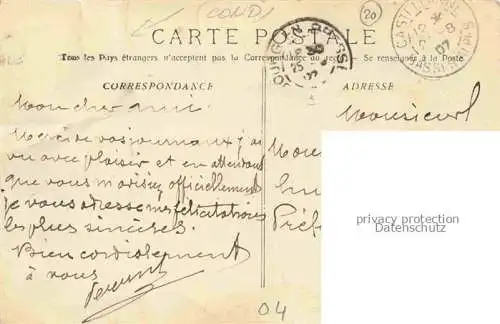 (COND)
20
CARTE POSTALE
Tous les Pays étrangers n'acceptent pas la Correspondance au recto. — Se renseigner à la Poste
CORRESPONDANCE
ADRESSE
Mon cher ami
Merci de vos journaux j'ai
vu avec plaisir et en attendant
que vous m'avisiez officiellement
je vous adresse mes félicitations
les plus sincères.
Bien cordialement
à vous
Monsieur
Préf
privacy protection
Datenschutz
04